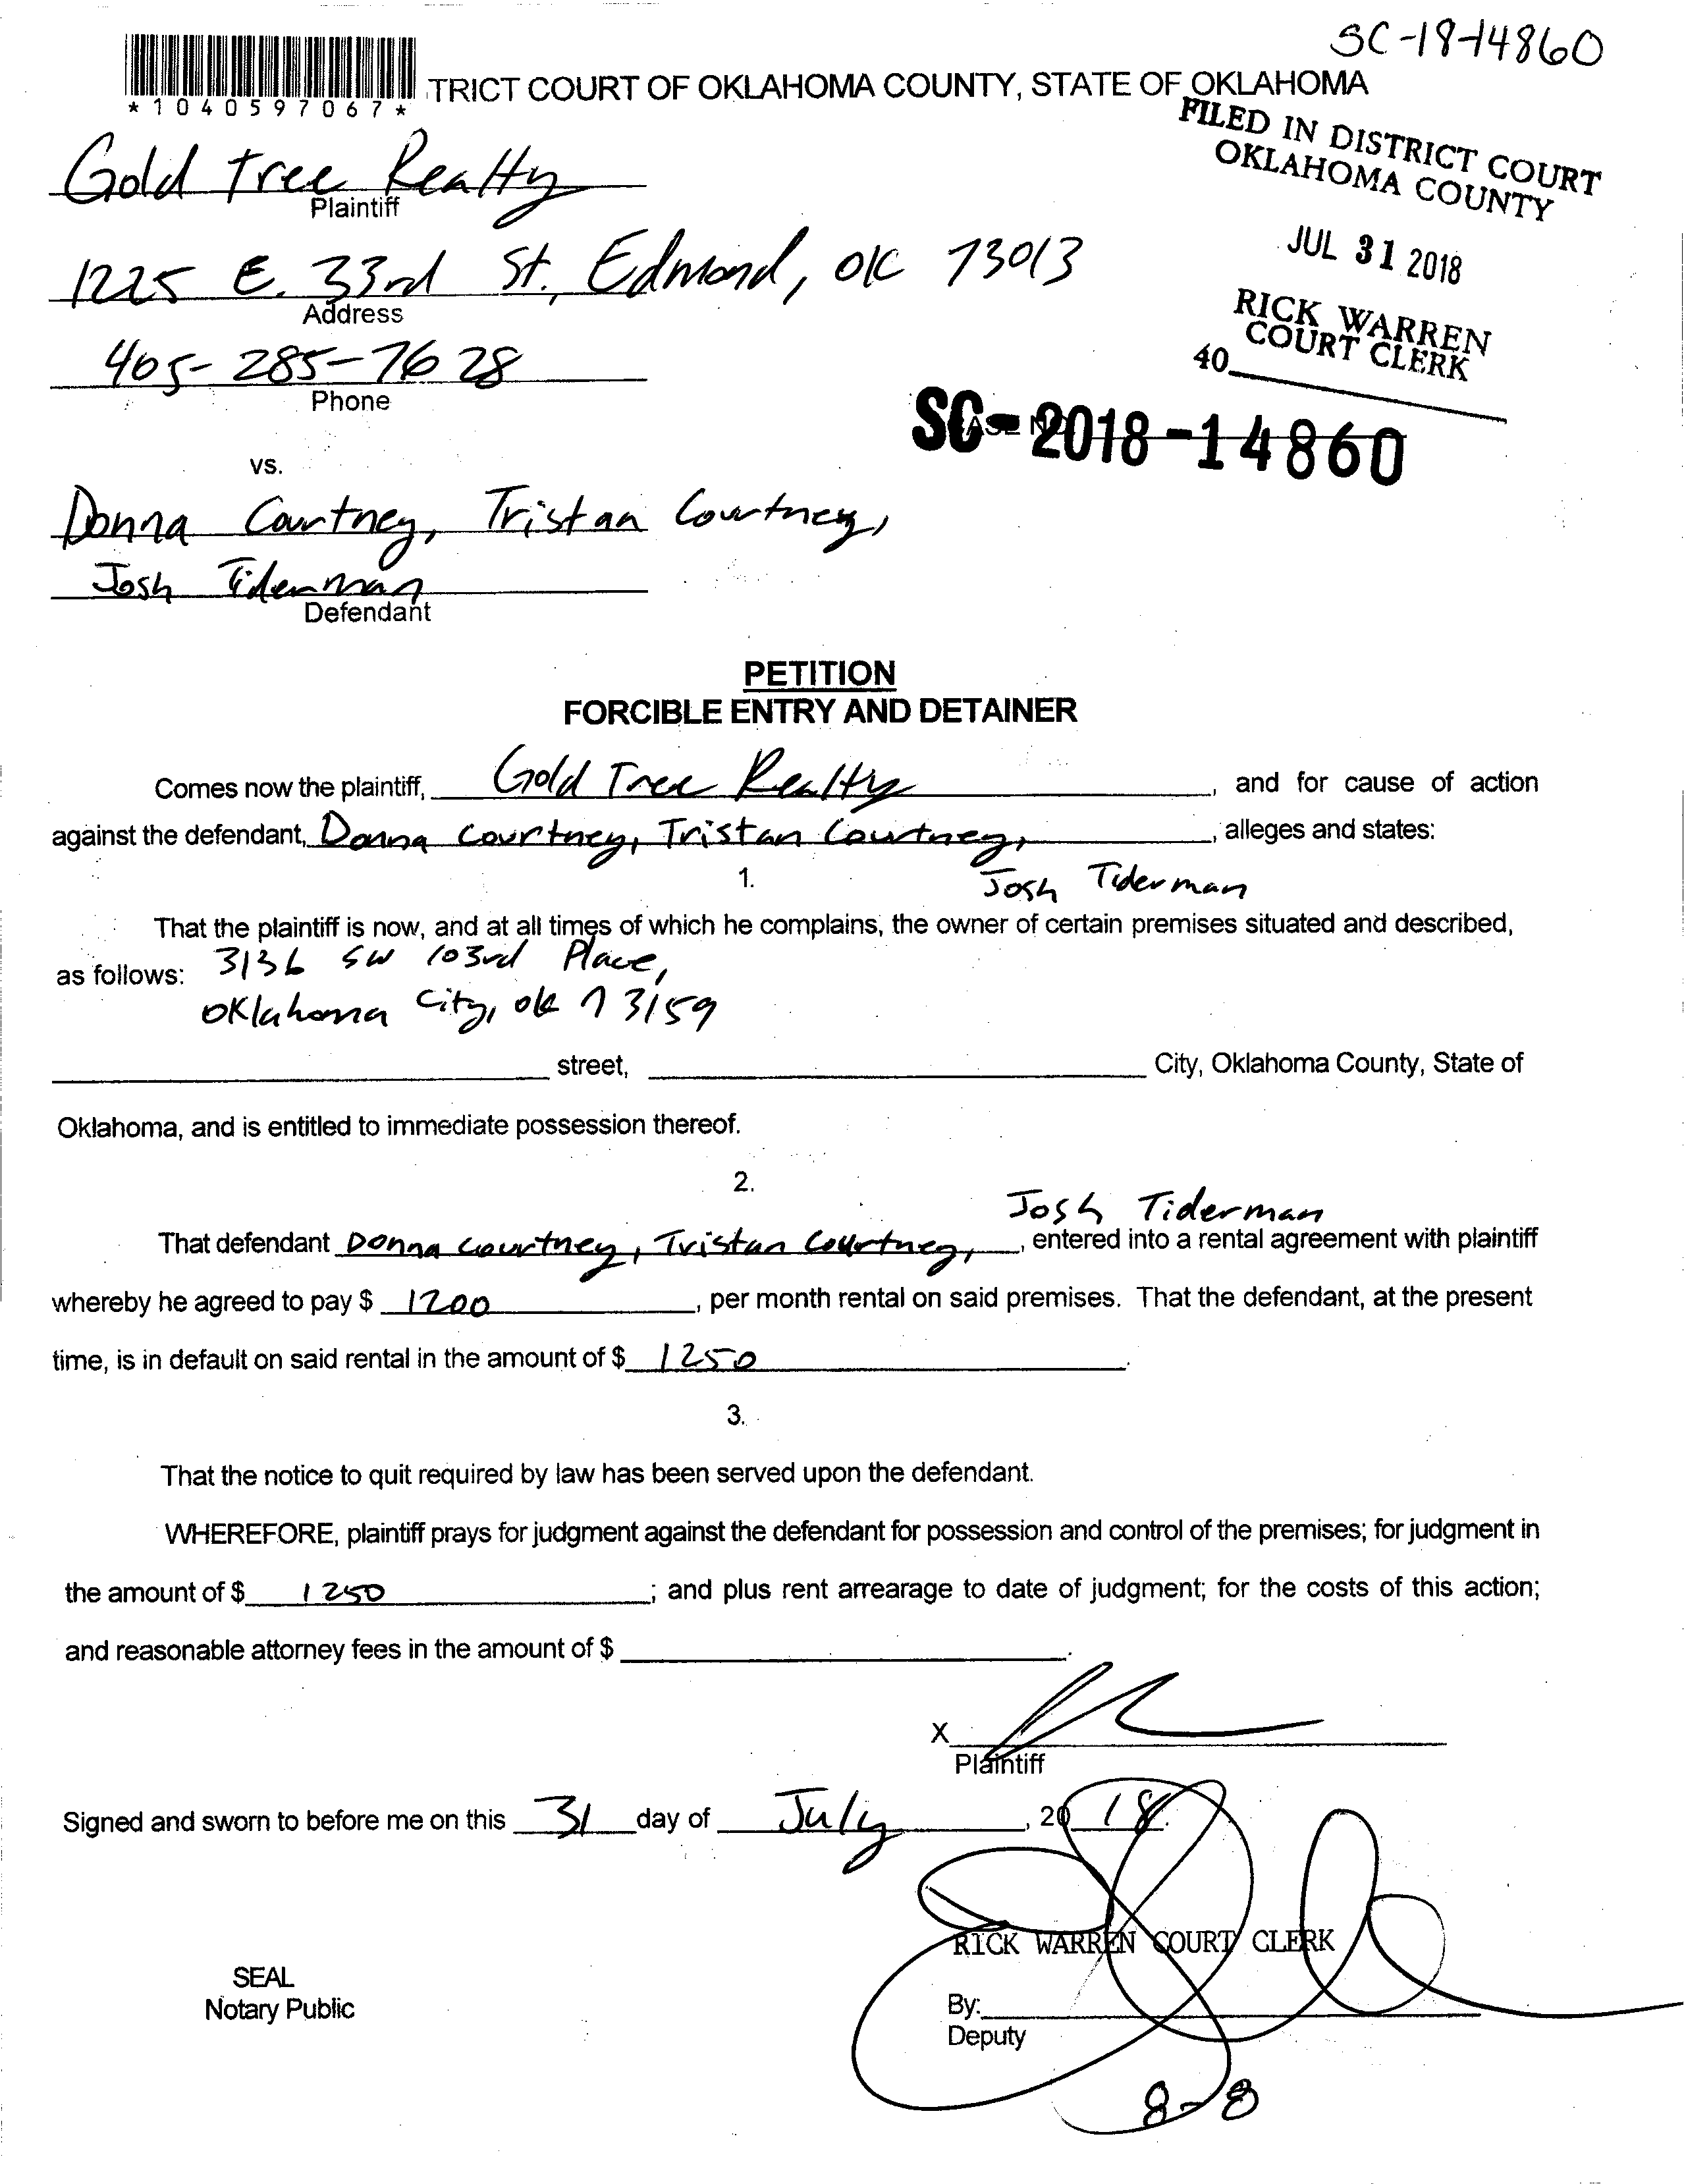 SC-18-14860
*1040597067*
TRICT COURT OF OKLAHOMA COUNTY, STATE OF OKLAHOMA
FILED IN DISTRICT COURT
OKLAHOMA COUNTY
JUL 31 2018
RICK WARREN
COURT CLERK
40
Gold Tree Realty
Plaintiff
1225 E. 33rd St., Edmond, OK 73013
Address
405-285-7628
Phone
SC-2018-14860
vs.
Donna Courtney, Tristan Courtney,
Josh Tiderman
Defendant
PETITION
FORCIBLE ENTRY AND DETAINER
Comes now the plaintiff, Gold Tree Realty, and for cause of action
against the defendant, Donna Courtney, Tristan Courtney, , alleges and states:
1. Josh Tiderman
That the plaintiff is now, and at all times of which he complains, the owner of certain premises situated and described,
as follows: 3136 SW 103rd Place,
Oklahoma City, ok 73159
street, City, Oklahoma County, State of
Oklahoma, and is entitled to immediate possession thereof.
2.
Josh Tiderman
That defendant Donna Courtney, Tristan Courtney, , entered into a rental agreement with plaintiff
whereby he agreed to pay $ 1200, per month rental on said premises. That the defendant, at the present
time, is in default on said rental in the amount of $ 1250.
3.
That the notice to quit required by law has been served upon the defendant.
WHEREFORE, plaintiff prays for judgment against the defendant for possession and control of the premises; for judgment in
the amount of $ 1250; and plus rent arrearage to date of judgment; for the costs of this action;
and reasonable attorney fees in the amount of $ .
X
Plaintiff
Signed and sworn to before me on this 31 day of July, 2018.
RICK WARREN COURT CLERK
SEAL
Notary Public
By:
Deputy
8-8